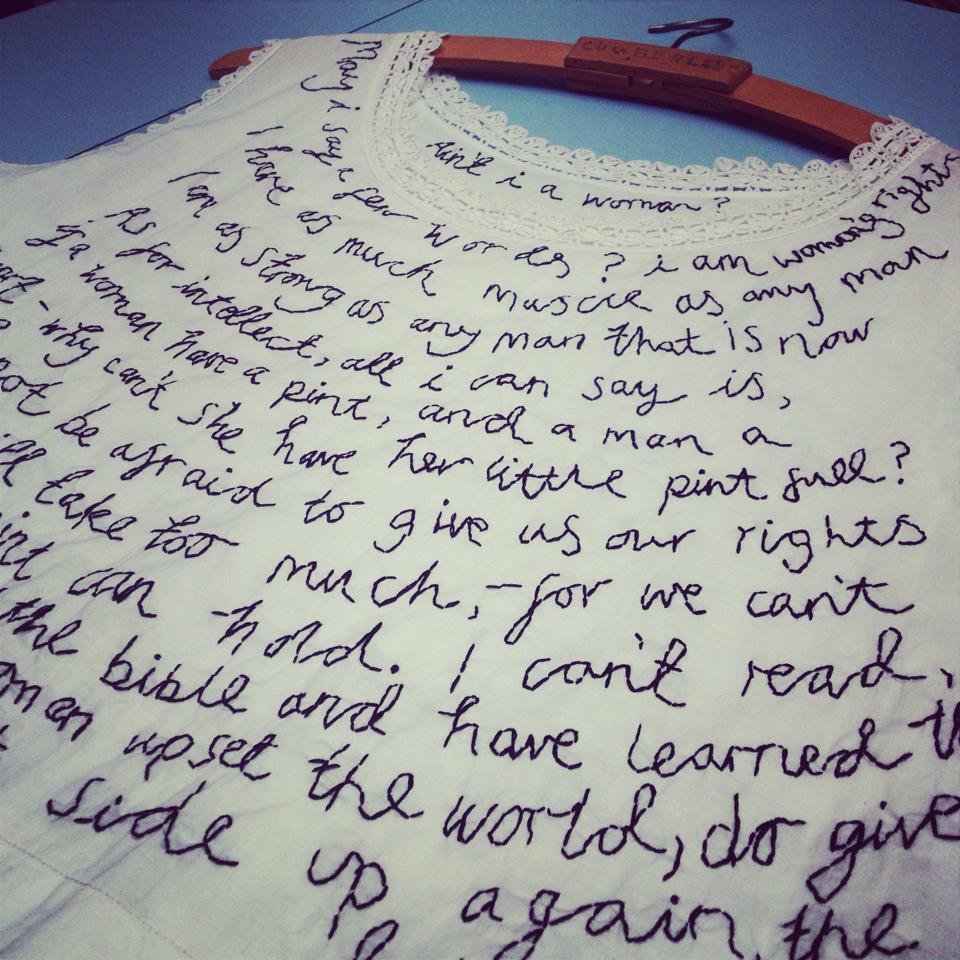 Ain't i a woman?
May i say a few words? i am woman's rights
I have as much muscle as any man
I am as strong as any man that is now
As for intellect, all i can say is,
if a woman have a pint, and a man a
- why can't she have her little pint full?
be afraid to give us our rights
take too much, - for we can't
can hold. I can't read,
the bible and have learned
upset the world, do give
side up again. the